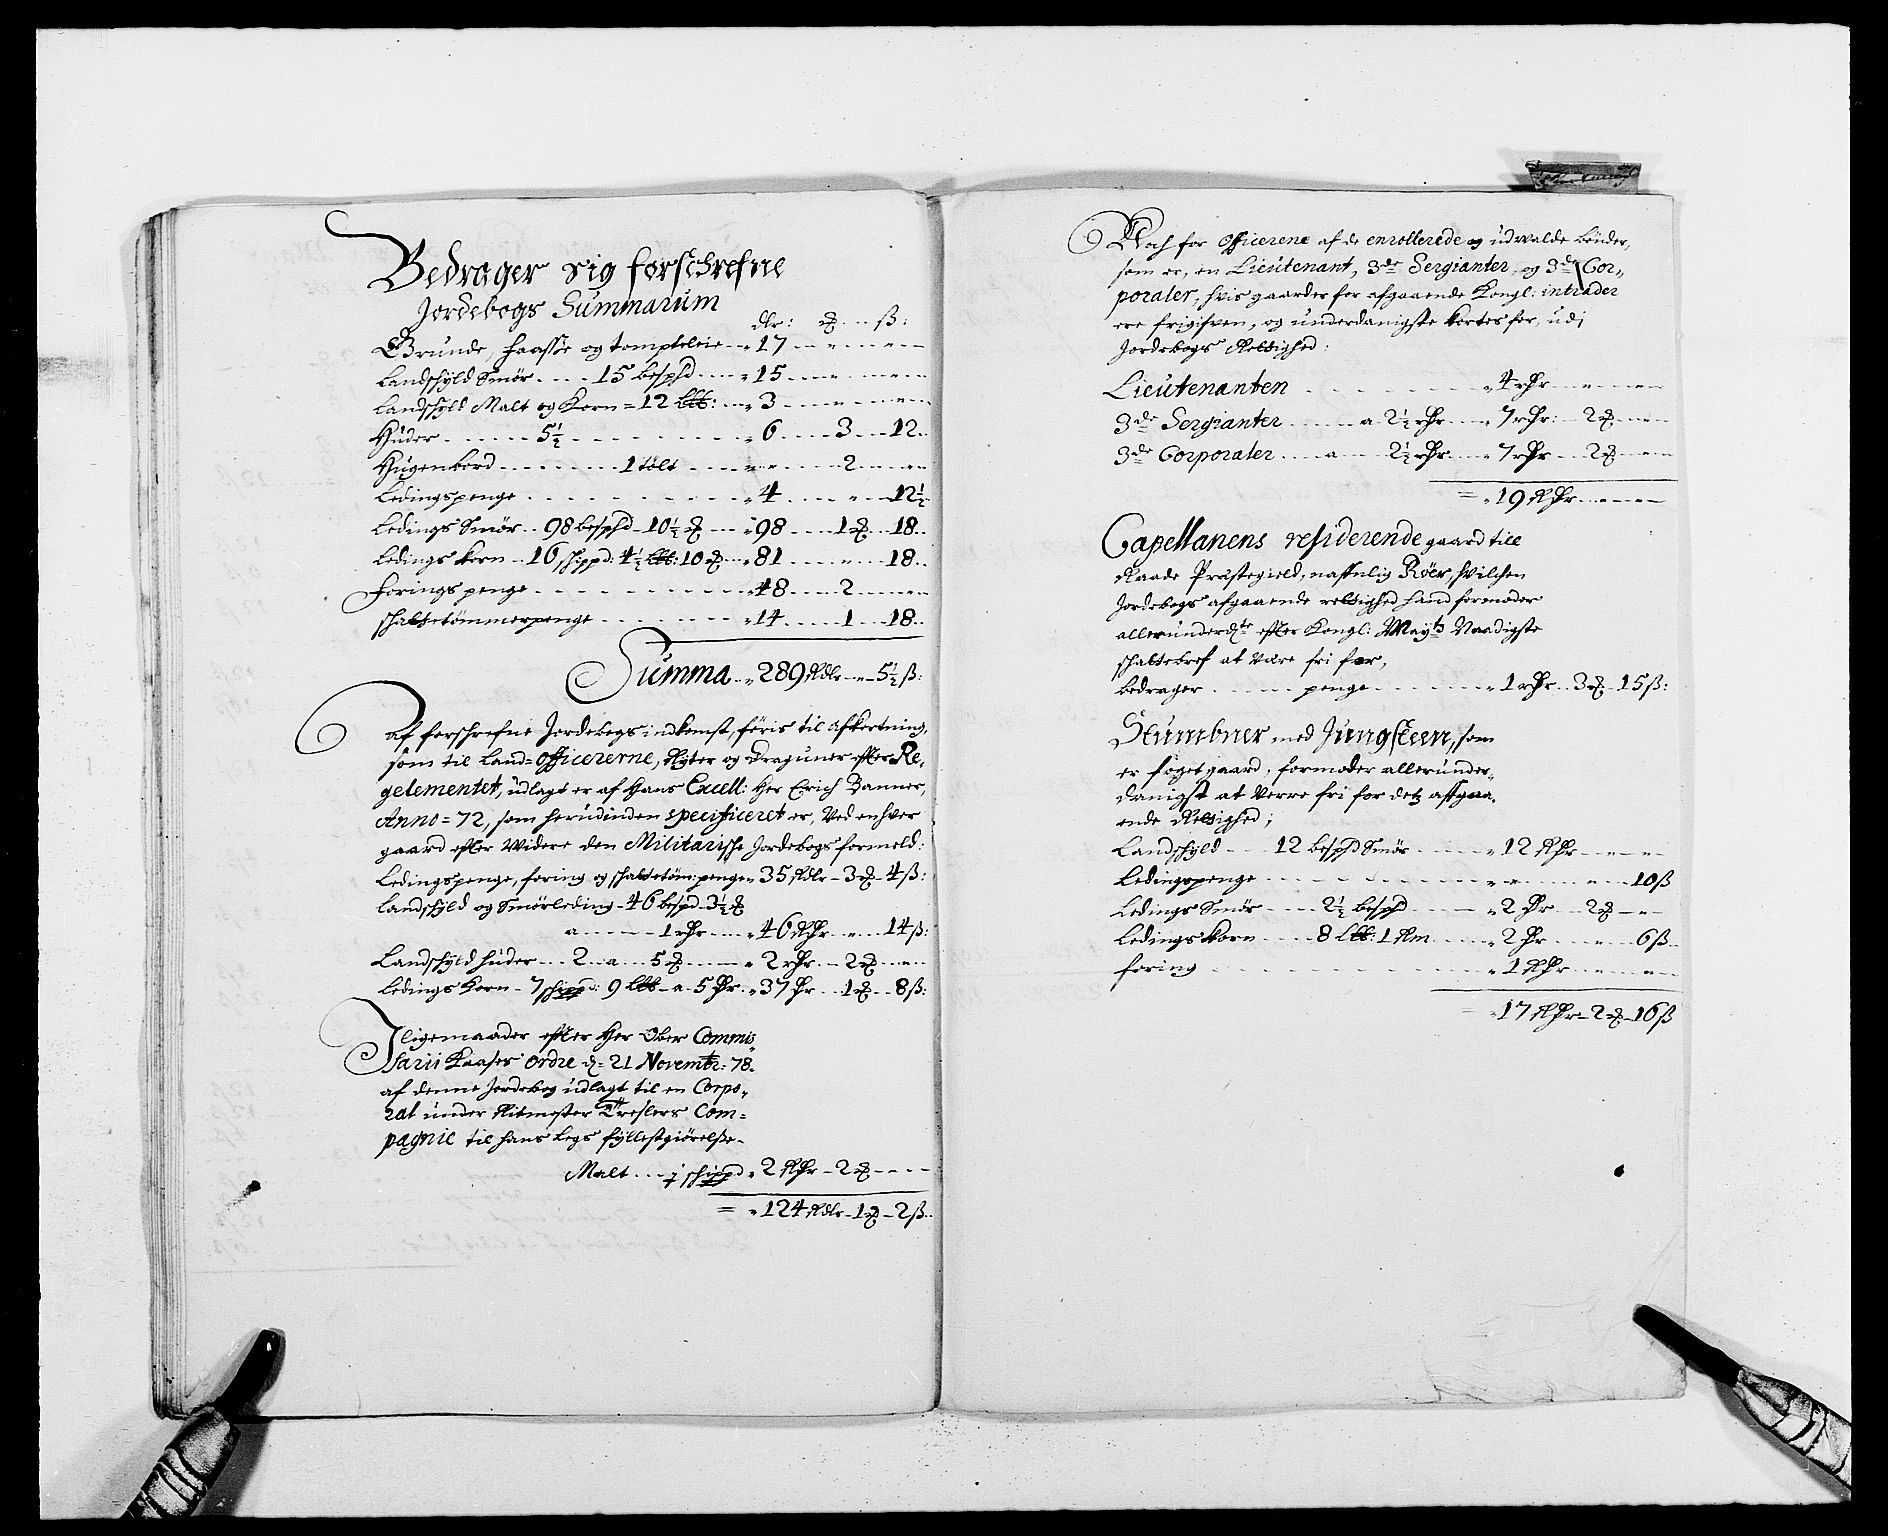 Bedrager sig forschrefne
Jordebogs Summarum
dlr: ß:
Grunde Haasse og tompteleie 17
Landschyld Smør 15 bespd 15
Landschyld Malt og Korn = 12 lbb: 3
Huder 5½ 6 3 12
Hugenbord 1 tolt 2
Ledingspenge 4 12½
Ledings Smør 98 bespd 10½ 98 1 18
Ledings korn 16 schippd: 4½ lbb: 10 81 18
Forings penge 48 2
Schattetømmerpenge 14 1 18
Summa 289 Rdlr 5½ ß:
Af forschrefne Jordebogs indkomst, føris til afkortning,
som til Land=officererne, Ryter og Draguner effter Re,
gelementet, udlagt er af Hans Excell: Her Erich Banner,
Anno = 72, som herudinden specificeret er, Ved enhver
gaard effter Widere den Militarische Jordebogs formeld:
Ledingspenge, foring og schattetøm:penge 35 Rdlr 3 4 ß:
Landschyld og Smørleding 46 bespd 3½
a 1 rdr 46 Rdr 14 ß:
Landschyld huder 2 a 5 2 rdr 2
Ledings Korn 7 schippd: 9 lbb a 5 dr 37 dr 1 8 ß:
I ligemaader effter Her Ober Commis
sarii Kaases ordre d: 21 Novembr: 78
af denne Jordebog udlagt til en Corpo,,
ral under Ritmester Treslers Com=
pagnie til hans Legs fyllestgiørelse
Malt 1 schippd 2 Rdr 2
= 124 Rdlr 1 2 ß
Noch for Officerene af de enrollerede og udvalde bønder,
som er, en Lieutenant, 3de Sergianter, og 3de Cor,,
poraler, hvis gaarder for afgaaende Kongl: intrader
ere frigifven, og underdanigste kortes for, udi
Jordebogs Rettighed:
Lieutenanten 4 rdr
3de Sergianter a 2½ rdr 7 rdr: 2
3de Corporaler a 2½ rdr 7 rdr 2
= 19 Rdr
Capellanens residerende gaard till
Raade Præstegield, naffnlig Röer, hvilchen
Jordebogs afgaaende rettighed hand formoder
allerunderdte effter Kongl: Mayts Naadigste
schattebref at være fri for,
bedrager penge 1 rdr 3 15 ß:
Stumbner med Jungsteen, som
er foget gaard, formoder allerunder,,
danigst at verre fri for dets affgaa,
ende Rettighed;
Landschyld 12 bespd Smør 12 Rdr
Ledingspenge 10 ß
Ledings Smør 2½ bespd 2 dr 2
Ledings korn 8 lbb: 1 Rm 2 dr 6 ß
foring 1 Rdr
17 Rdr 2 16 ß